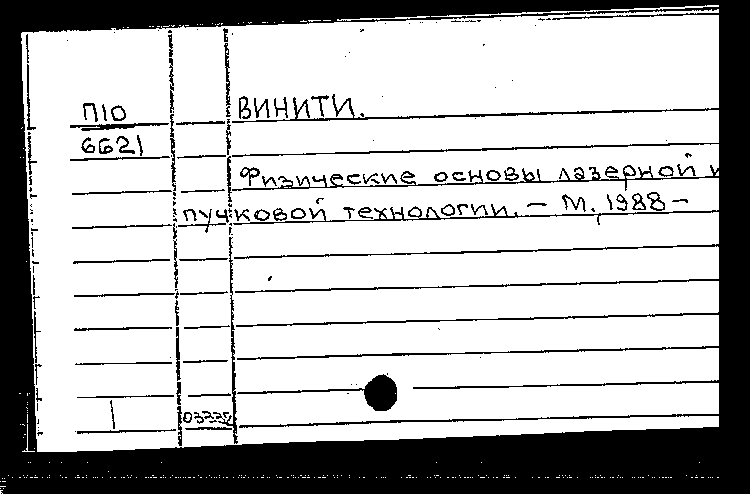 П10
6621
ВИНИТИ.
Физические основы лазерной и
пучковой технологии. – М., 1988 –
03332